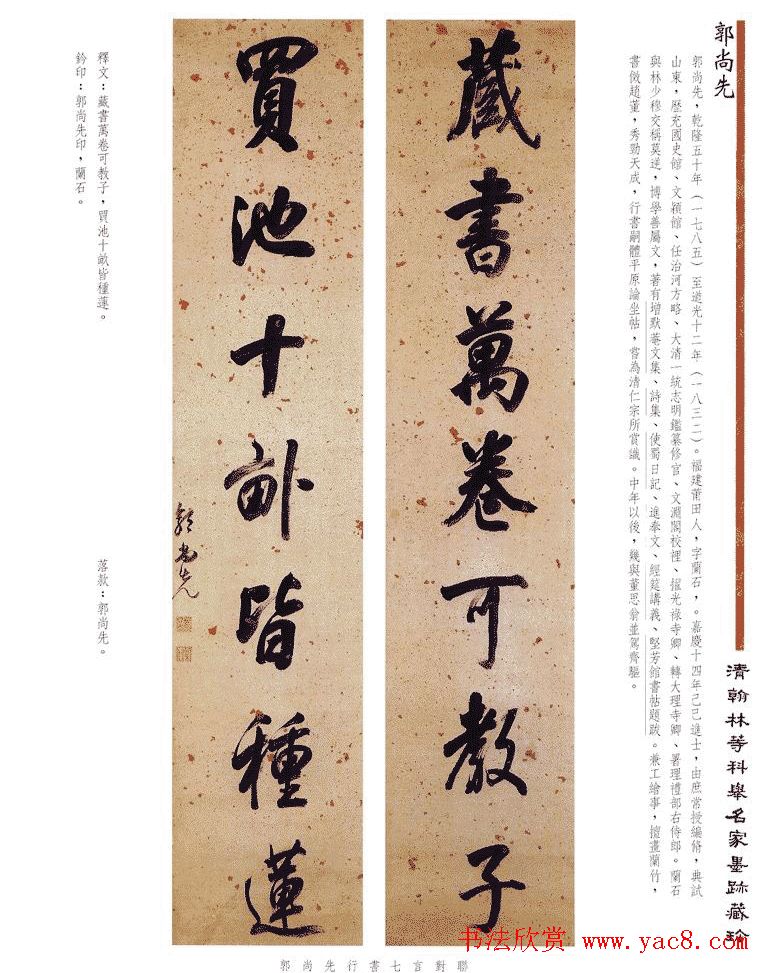 清翰林等科舉名家墨跡藏珍
郭尚先
郭尚先，乾隆五十年（一七八五）至道光十二年（一八三二）。福建莆田人，字蘭石，。嘉慶十四年己巳進士，由庶常授編脩，典試
山東，歷充國史館、文穎館、任治河方略、大清一統志明鑑纂修官、文淵閣校裡、擢光祿寺卿、轉大理寺卿、署理禮部右侍郎。蘭石
與林少穆交稱莫逆，博學善屬文，著有增默菴文集、詩集、使蜀日記、進奉文、經筵講義、堅芳館書帖題跋。兼工繪事，擅畫蘭竹，
書倣趙董，秀勁天成，行書嗣體平原論坐帖，嘗為清仁宗所賞識。中年以後，幾與董思翁並駕齊驅。
藏書萬卷可教子
買池十畝皆種蓮
郭尚先
釋文：藏書萬卷可教子，買池十畝皆種蓮。
落款：郭尚先。
鈐印：郭尚先印，蘭石。
郭尚先行書七言對聯
书法欣赏 www.yac8.com